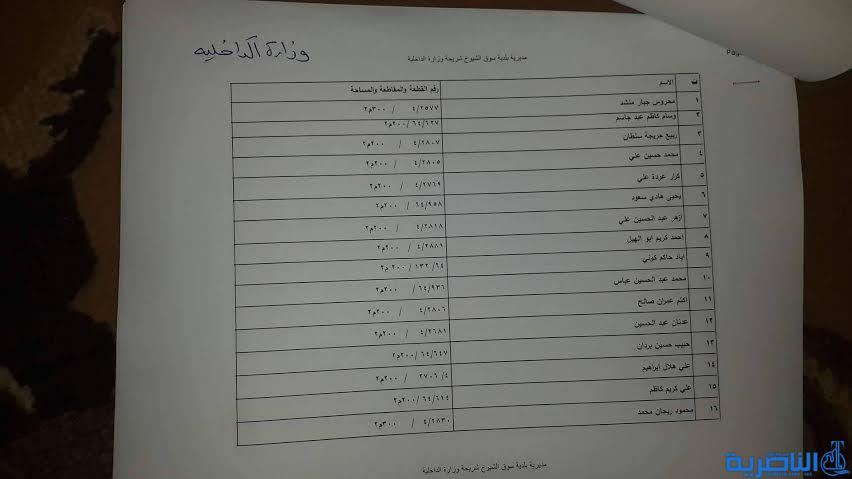 وزارة الداخليه
مديرية بلدية سوق الشيوخ شريحة وزارة الداخلية
ت الاسم رقم القطعة والمقاطعة والمساحة
١ محروس جبار منشد ٤/٢٥٧٧ / ٣٠٠م٢
٢ وسام كاظم عبد جاسم ٦٤/٦٢٧ /٢٠٠م٢
٣ ربيع حريجة سلطان ٤/٢٨٠٧ / ٢٠٠م٢
٤ محمد حسين علي ٤/٢٨٠٥ / ٢٠٠م٢
٥ كرار عودة علي ٤/٢٧٦٩ / ٢٠٠م٢
٦ يحيى هادي سعود ٦٤/٩٥٨ / ٢٠٠م٢
٧ ازهر عبد الحسين علي ٤/٢٨١٨ / ٢٠٠م٢
٨ احمد كريم ابو الهيل ٤/٢٨٨١ / ٢٠٠م٢
٩ اياد حاكم كوني ٦٤/ ١٣٢ / ٢٠٠م٢
١٠ محمد عبد الحسين عباس ٦٤/٩٣٦ / ٢٠٠م٢
١١ اكثم عمران صالح ٤/٢٨٠٦ / ٢٠٠م٢
١٢ عدنان عبد الحسين ٤/٢٦٨١ / ٢٠٠م٢
١٣ حبيب حسين بردان ٦٤/٦٤٧ /٢٠٠م٢
١٤ علي هلال ابراهيم ٤/ ٢٧٠٦ / ٢٠٠م٢
١٥ علي كريم كاظم ٦٤/٦١٤ /٢٠٠م٢
١٦ محمود ريحان محمد ٤/٢٨٣٠ / ٣٠٠م٢
مديرية بلدية سوق الشيوخ شريحة وزارة الداخلية
الناصرية